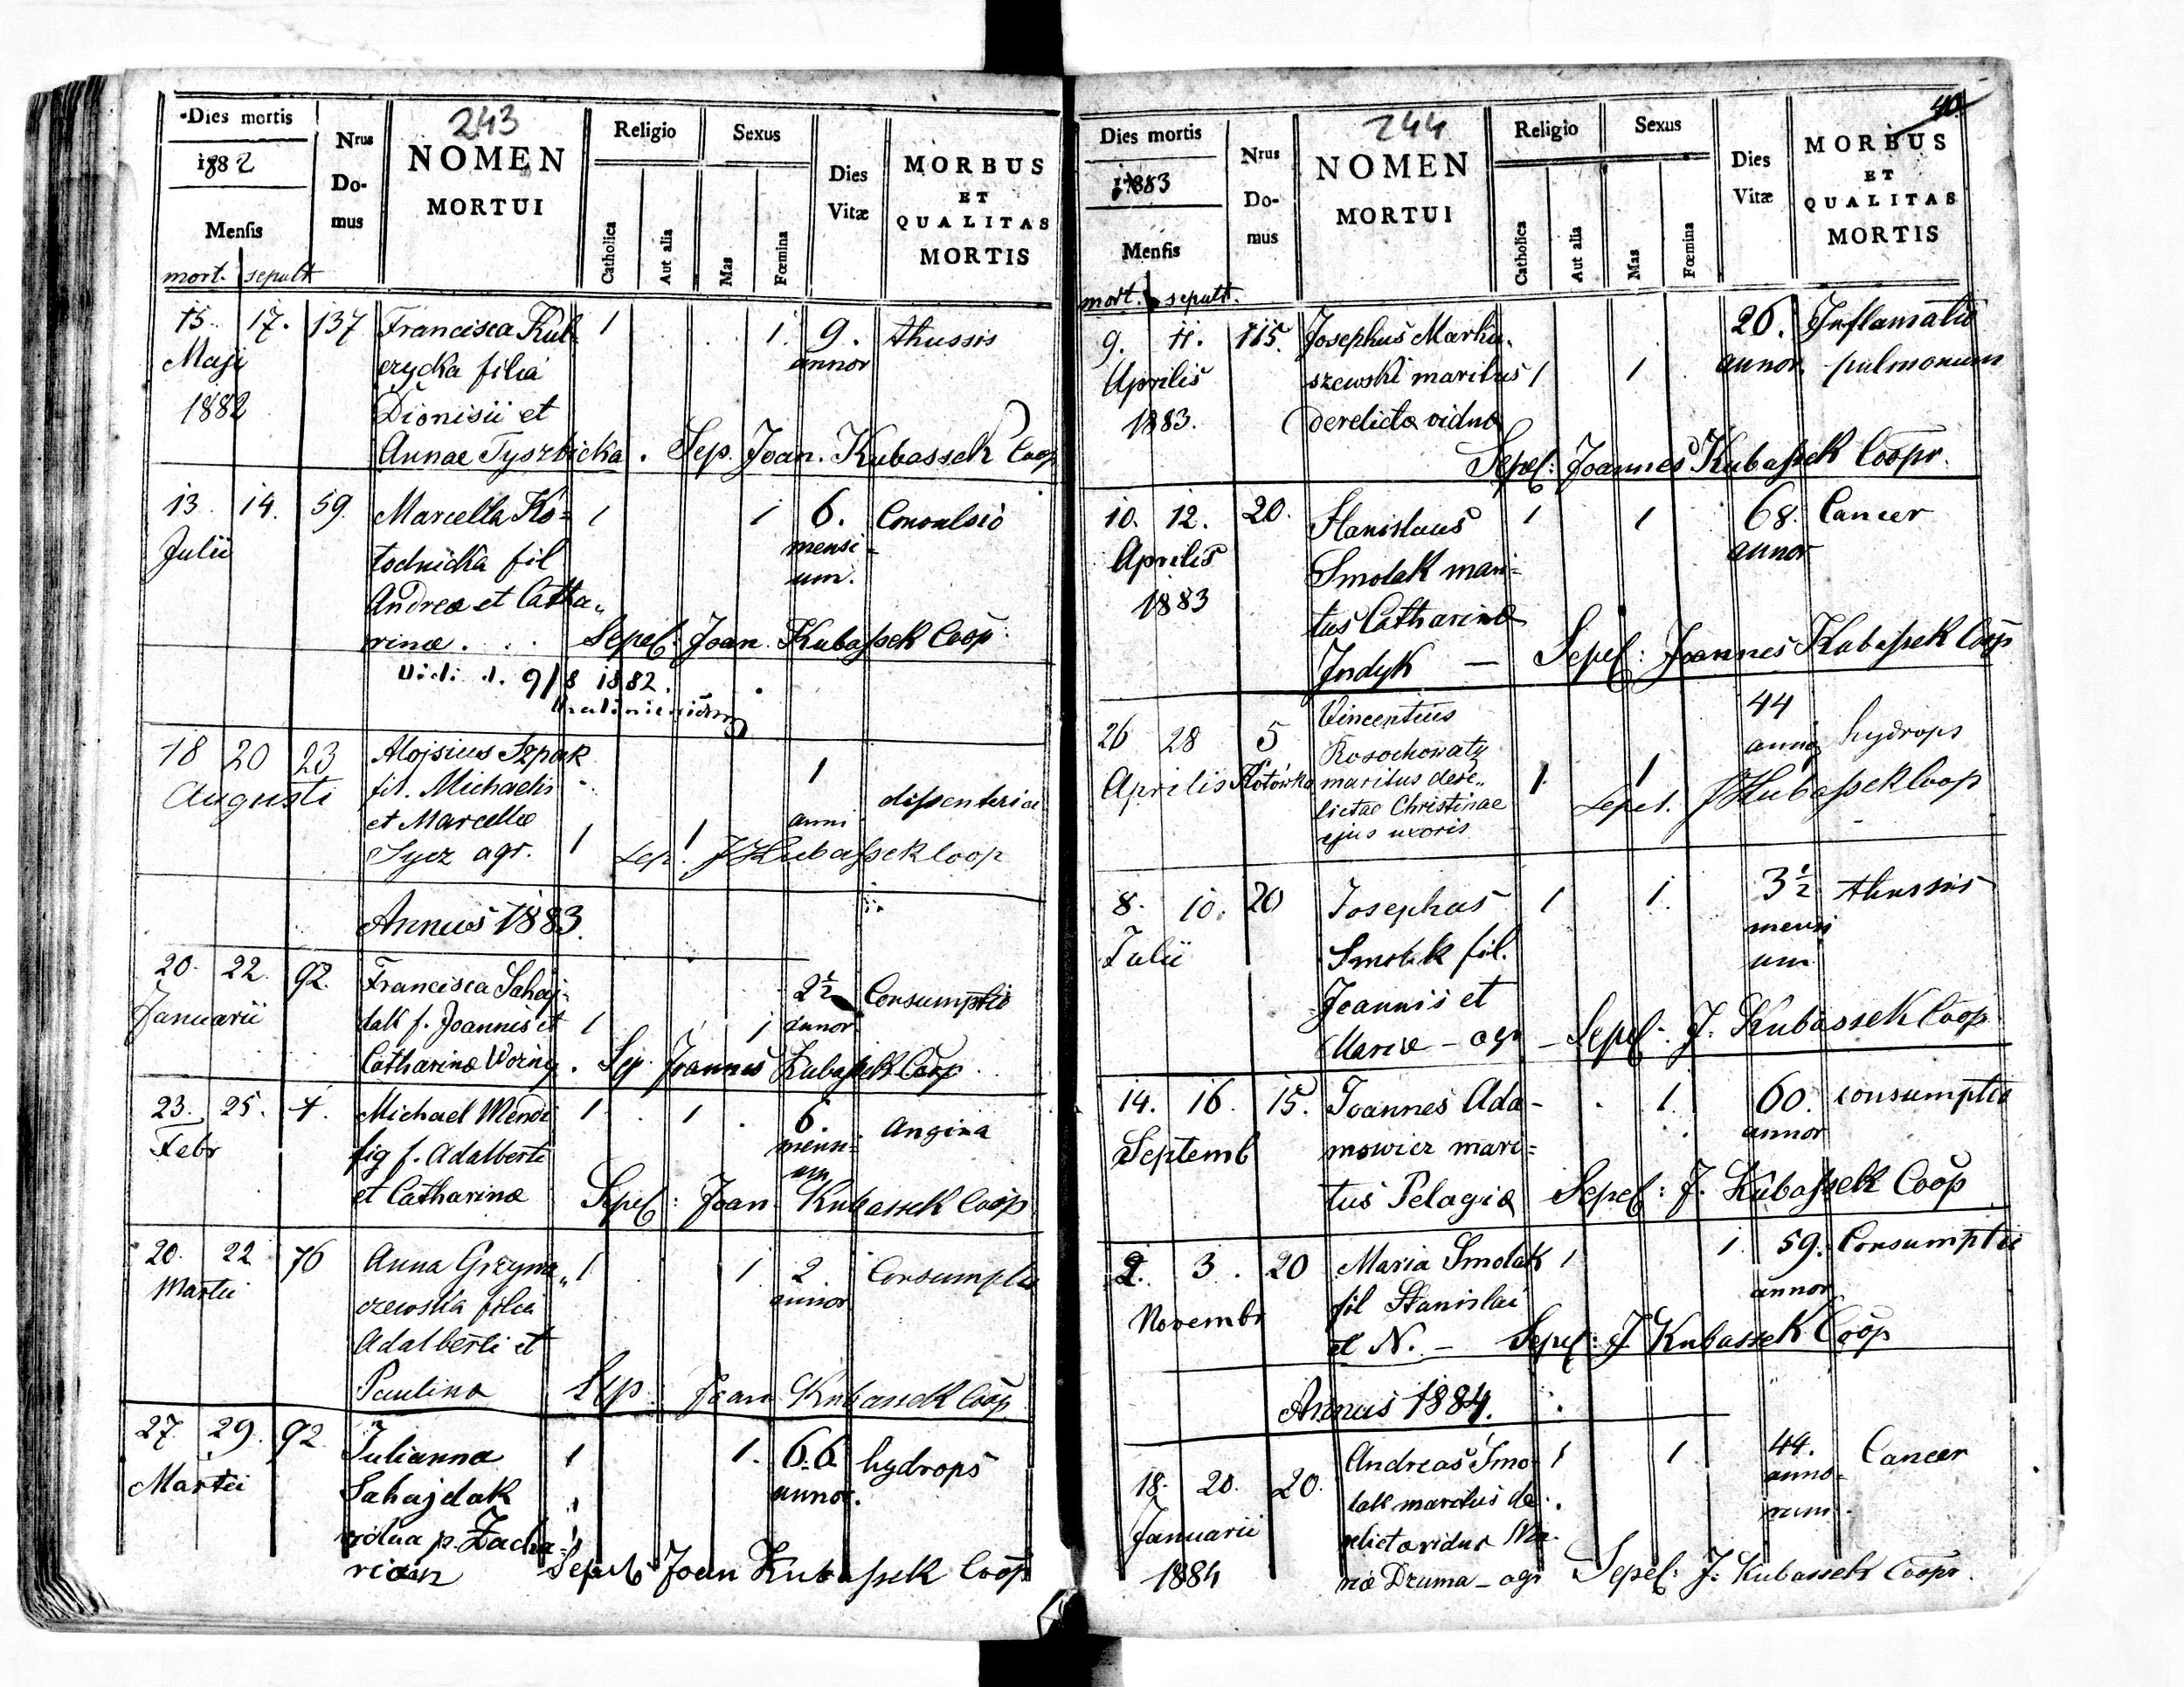 243
Dies mortis
1882
Mensis
mort. sepult
Nrus Do- mus
NOMEN
MORTUI
Religio
Catholica
Aut alia
Sexus
Mas
Fœmina
Dies Vitæ
MORBUS
ET
QUALITAS
MORTIS
15. 17. 137 Francisca Kul- 1 1. 9. thussis
Maji czycka filia annor
1882 Dionisii et
Annae Tyszbicka. Sep. Joan. Kubassek Coop
13. 14. 59. Marcella Ko= 1 1 6. Convulsio
Julii todnicka fil mensi-
Andreæ et Catha„ um.
rinæ. Sepel: Joan. Kubassek Coop.
Vidi d. 9/8 1882.
18 20 23 Alojsius Szpak 1
Augusti fil. Michaelis dissenteria
et Marcellæ anni
Sycz agr. 1 1 Sep. J Kubassek Coop
Annus 1883.
20. 22. 92. Francisca Sahaj- 2½ Consumptio
Januarii dak f. Joannis et 1 1 annor
Catharinæ Worny. Sep. Joannes Kubassek Coop.
23. 25. 4. Michael Mendi 1. 1. 6. angina
Febr fig f. Adalberti mensi-
et Catharinæ um Sepel: Joan. Kubassek Coop
20. 22 76 Anna Grzyma„ 1 1. 2. Consumptio
Martii czewska filia annor
Adalberti et
Paulinæ Sep: Joan Kubassek Coop
27. 29. 92 Julianna 1 1. 66 hydrops
Martii Sahajdak annor.
vidua p. Zacha-
riam Sepel: Joan Kubassek Coop
40.
244
Dies mortis
1883
Mensis
mort. sepult.
Nrus Do- mus
NOMEN
MORTUI
Religio
Catholica
Aut alia
Sexus
Mas
Fœmina
Dies Vitæ
MORBUS
ET
QUALITAS
MORTIS
9. 11. 115. Josephus Marku- 26. Inflamatio
Aprilis szewski maritus 1 1 annor pulmonum
1883. derelictæ viduæ
Sepel: Joannes Kubassek Coopr.
10. 12. 20. Stanislaus 1 1 68. Cancer
Aprilis Smolak mari= annor
1883 tus Catharinæ
Indyk — Sepel: Joannes Kubassek Coop
26 28 5 Vincentius 44
Rosochowaty annor hydrops
Aprilis maritus dere„ 1. 1
lictae Christinae Sepel. J Kubassek Coop
ejus uxoris
8. 10. 20 Josephus 1 1. 3½ thussis
Julii Smolak fil. mensi
Joannis et um
Mariæ - agr - Sepel: J. Kubassek Coop
14. 16. 15. Joannes Ada- 1. 60. consumptio
Septemb mowicz mari= annor
tus Pelagiæ Sepel: J. Kubassek Coop
2. 3. 20 Maria Smolak 1 1. 59. Consumptio
Novembr fil Stanislai annor
et N. - Sepel: J Kubassek Coop
Annus 1884.
18. 20. 20. Andreas Smo- 1 1 44. Cancer
Januarii lak maritus de- anno-
1884 relictæ viduæ Ma- rum.
riæ Druma - agr Sepel: J. Kubassek Coopr.